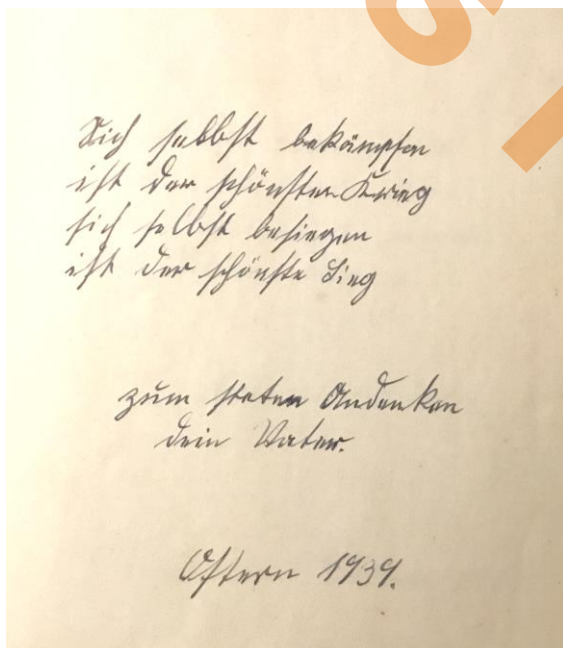 Sich selbst bekämpfen
ist der schönste Krieg
sich selbst besiegen
ist der schönste Sieg
zum steten Andenken
dein Vater.
Ostern 1939.